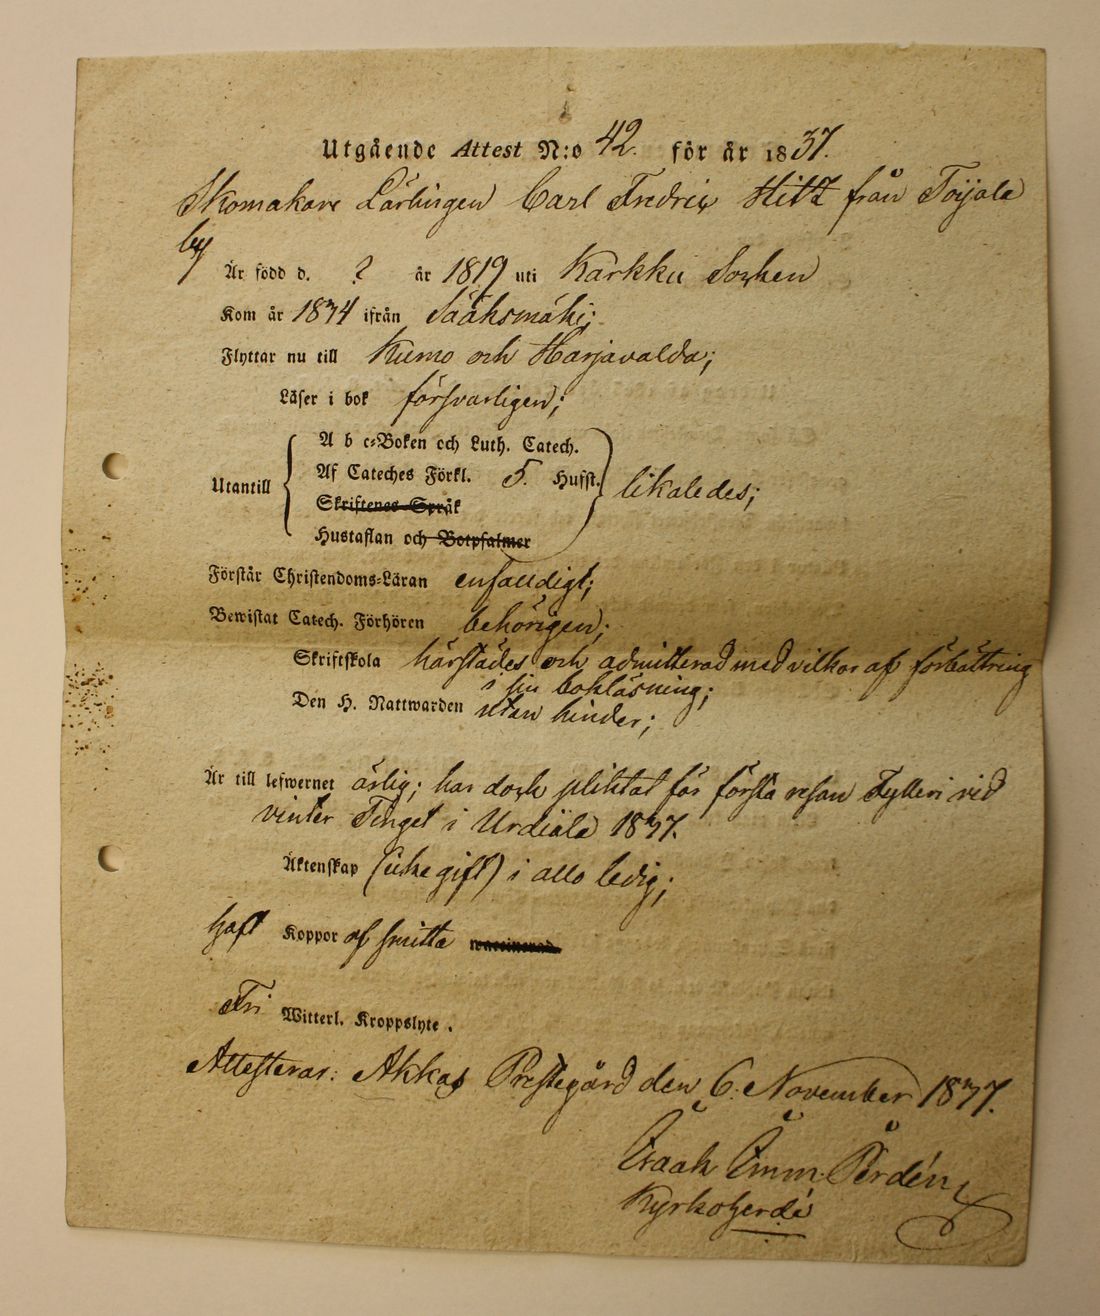 Utgående Attest N:o 42. för år 1837.
Skomakare Lärlingen Carl Fredric Hitz från Toijala
by
Är född d. ? år 1819 uti Karkku Sockn
Kom år 1834 ifrån Sääksmäki;
Flyttar nu till Kumo och Harjavalda;
Läser i bok försvarligen;
A b c-Boken och Luth. Catech.
Af Cateches Förkl. 5. Hufst.
Utantill likaledes;
Skriftenes Språk
Hustaflan och Botpsalmer
Förstår Christendoms-Läran enfaldigt;
Bewistat Catech. Förhören behörigen;
Skriftskola härstädes och admitterad med vilkor af förbättring
i sin bokläsning;
Den H. Nattwarden utan hinder;
Är till lefwernet ärlig; har dock pliktat för första resan Fylleri vid
vinter Tinget i Urdiala 1837.
Äktenskap (icke gift) i allo ledig;
haft Koppor af smitta waccinerad
Fri Witterl. Kroppslyte.
Attesterar: Akkas Prestegård den 6. November 1837.
Isaak Imm. Pordén
Kyrkoherde